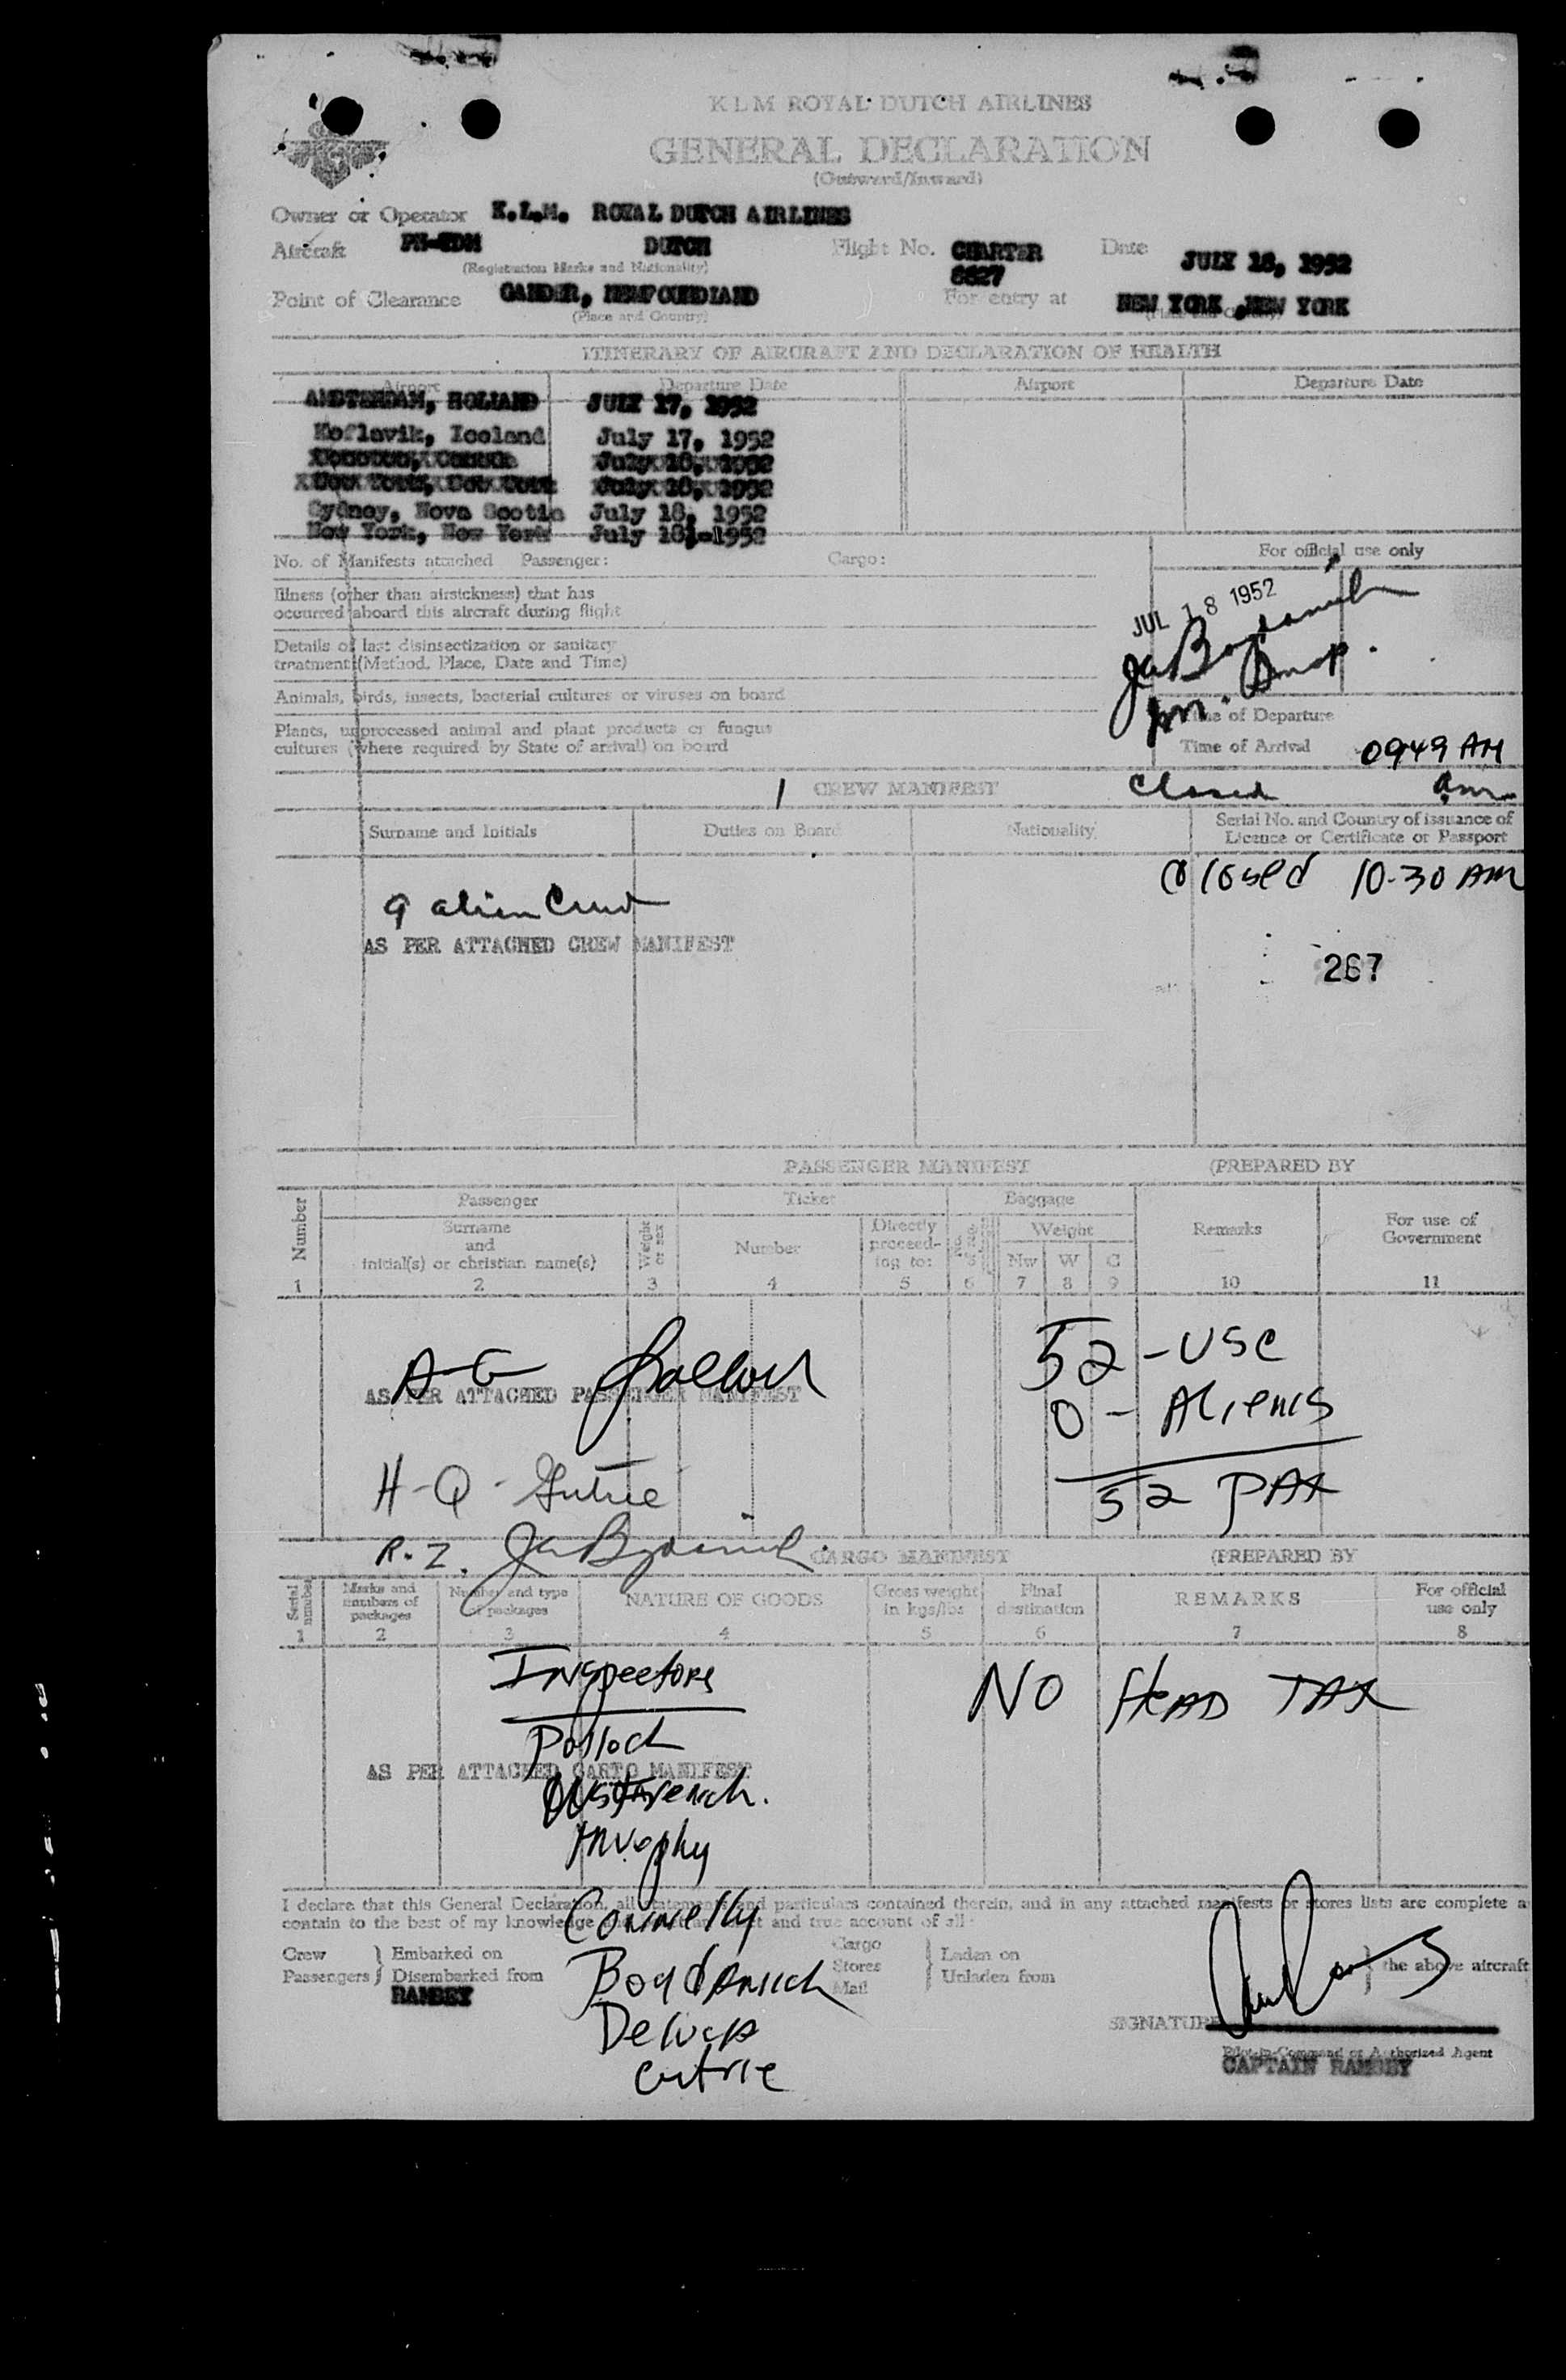 KLM ROYAL DUTCH AIRLINES
GENERAL DECLARATION
(Outward/Inward)
Owner or Operator K.L.M. ROYAL DUTCH AIRLINES
Aircraft DUTCH Flight No. CHARTER 8827 Date JULY 18, 1952
(Registration Marks and Nationality)
Point of Clearance GANDER, NEWFOUNDLAND For entry at NEW YORK, NEW YORK
(Place and Country)
ITINERARY OF AIRCRAFT AND DECLARATION OF HEALTH
Airport Departure Date Airport Departure Date
AMSTERDAM, HOLLAND JULY 17, 1952
Keflavik, Iceland July 17, 1952
Sydney, Nova Scotia July 18, 1952
New York, New York July 18, 1952
No. of Manifests attached Passenger: Cargo: For official use only
Illness (other than airsickness) that has
occurred aboard this aircraft during flight
JUL 18 1952
Details of last disinsectization or sanitary
treatment (Method, Place, Date and Time)
Animals, birds, insects, bacterial cultures or viruses on board
Plants, unprocessed animal and plant products or fungus
cultures (where required by State of arrival) on board
Time of Departure
Time of Arrival 0949 AM
1 CREW MANIFEST Closed
Surname and Initials Duties on Board Nationality Serial No. and Country of issuance of
Licence or Certificate or Passport
Closed 10-30 AM
9 alien Crew
AS PER ATTACHED CREW MANIFEST
267
PASSENGER MANIFEST (PREPARED BY
Number Passenger Ticket Baggage
Surname and initial(s) or christian name(s) Weight or sex Number Directly proceeding to: Weight Remarks For use of Government
Nw W C
1 2 3 4 5 6 7 8 9 10 11
52 - USC
A-G
AS PER ATTACHED PASSENGER MANIFEST
0 - Aliens
H-Q - Gutrie
52 PAX
R.Z.
CARGO MANIFEST (PREPARED BY
Serial number Marks and numbers of packages Number and type of packages NATURE OF GOODS Gross weight in kgs/lbs Final destination REMARKS For official use only
1 2 3 4 5 6 7 8
Inspectors
NO HEAD TAX
Polloch
AS PER ATTACHED CARTO MANIFEST
Murphy
I declare that this General Declaration, all statements and particulars contained therein, and in any attached manifests or stores lists are complete
contain to the best of my knowledge and true account of all:
Connelly
Crew Embarked on Cargo Laden on
Passengers Disembarked from Stores Unladen from the above aircraft
Mail
Bogdanich
RAMSEY
DeLuca
SIGNATURE
Pilot-in-Command or Authorized Agent
CAPTAIN RAMSEY
Cutrie